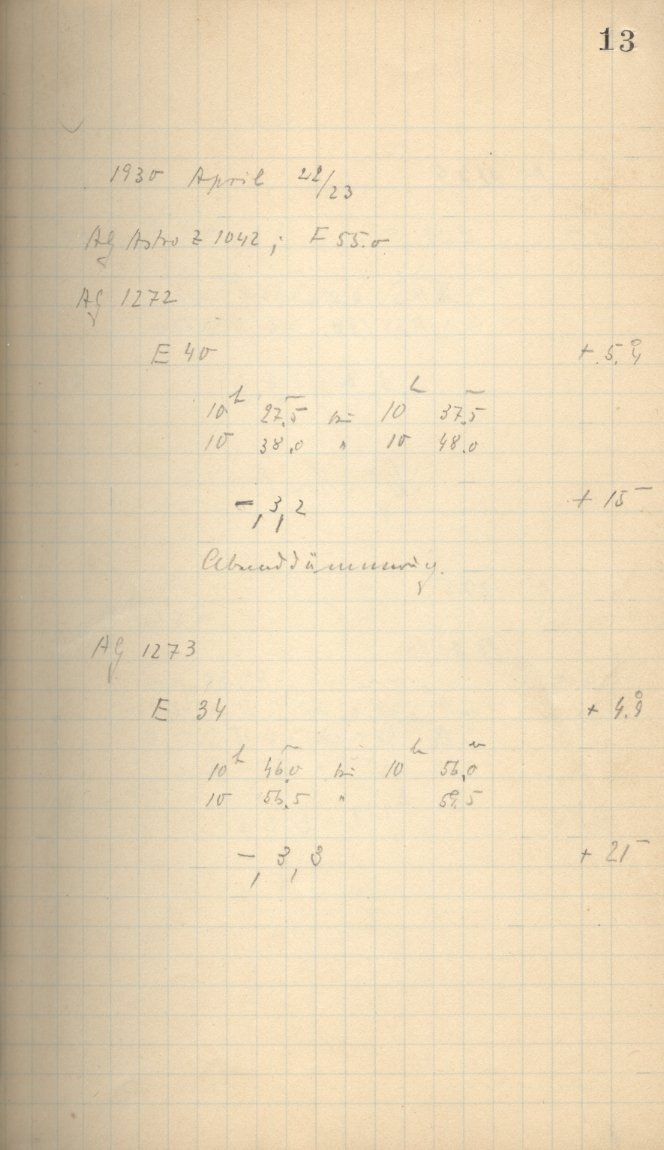 13
1930 April 22/23
AG Astro Z 1042 ; F 55.0
AG 1272
E 40 + 5.°4
10ʰ 27.5 bis 10ʰ 37.5
10 38.0 " 10 48.0
–, 3, 2 + 15
Abenddämmerung.
AG 1273
E 34 + 4.°9
10ʰ 46.0 bis 10ʰ 56.0
10 56.5 " 59.5
–, 3, 3 + 21